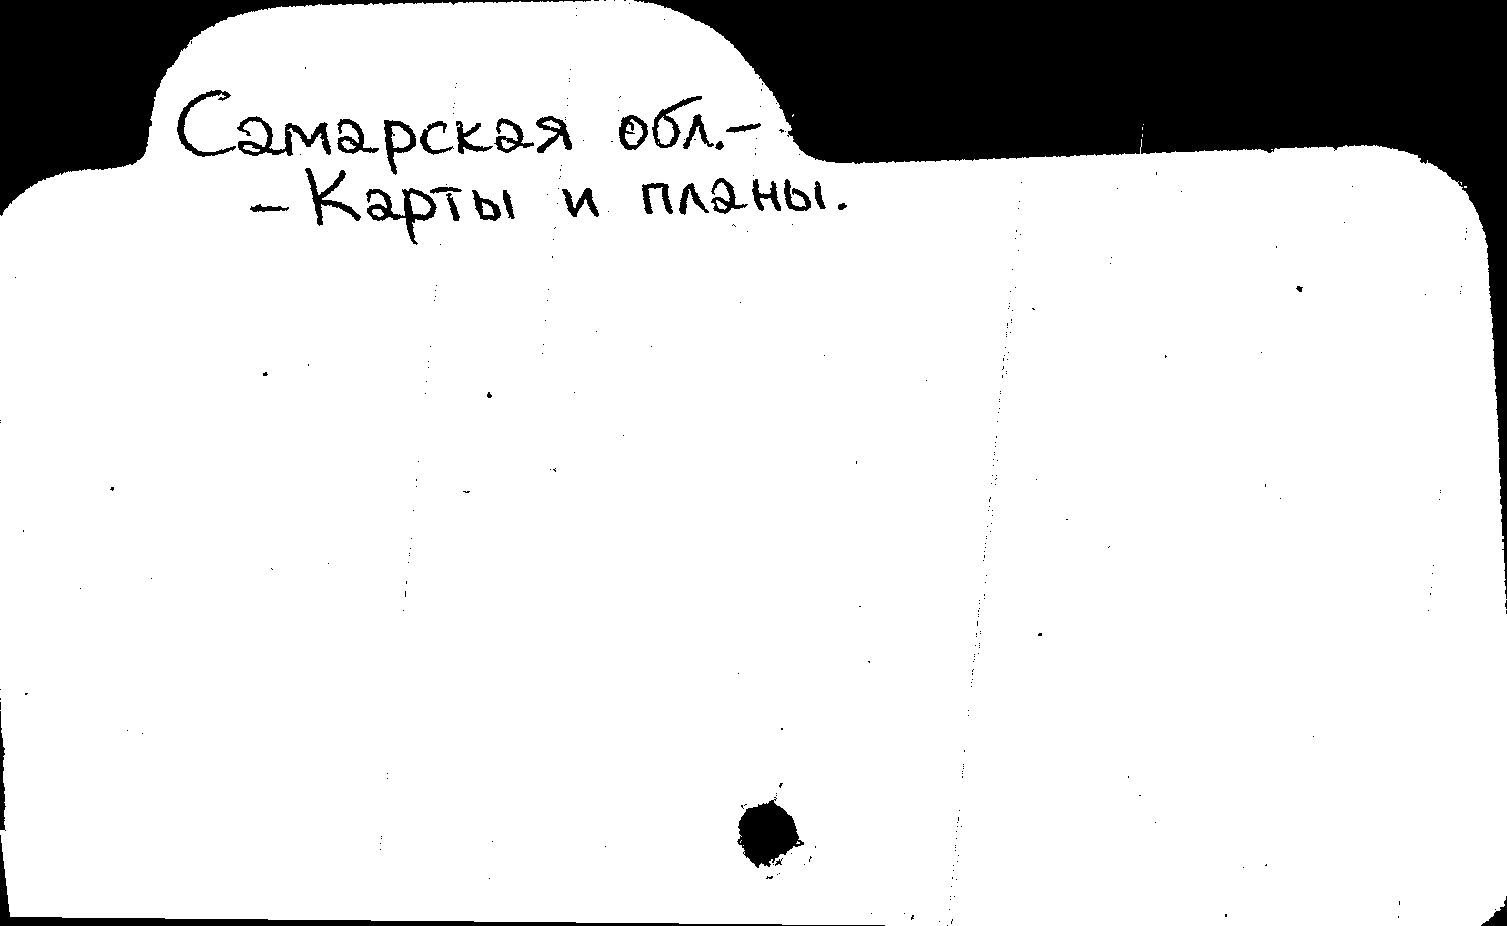 Самарская обл.-
- Карты и планы.